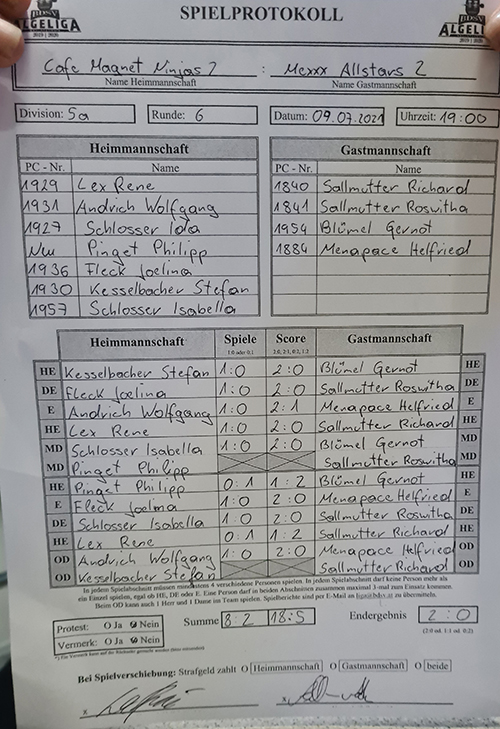 BDSV
ALGELIGA
2019 | 2020
SPIELPROTOKOLL
BDSV
ALGELIGA
2019 | 2020
Cafe Magnet Ninjas 2 : Mexxx Allstars 2
Name Heimmannschaft Name Gastmannschaft
Division: 5a Runde: 6 Datum: 09.07.2021 Uhrzeit: 19:00
Heimmannschaft Gastmannschaft
PC - Nr. Name PC - Nr. Name
1929 Lex Rene 1840 Sallmutter Richard
1931 Andrich Wolfgang 1841 Sallmutter Roswitha
1927 Schlosser Ida 1954 Blümel Gernot
Neu Pinget Philipp 1884 Menapace Helfried
1936 Fleck Joelina
1930 Kesselbacher Stefan
1957 Schlosser Isabella
Heimmannschaft Spiele Score Gastmannschaft
1:0 oder 0:1 2:0, 2:1, 0:2, 1:2
HE Kesselbacher Stefan 1:0 2:0 Blümel Gernot HE
DE Fleck Joelina 1:0 2:0 Sallmutter Roswitha DE
E Andrich Wolfgang 1:0 2:1 Menapace Helfried E
HE Lex Rene 1:0 2:0 Sallmutter Richard HE
MD Schlosser Isabella 1:0 2:0 Blümel Gernot MD
MD Pinget Philipp Sallmutter Roswitha MD
HE Pinget Philipp 0:1 1:2 Blümel Gernot HE
E Fleck Joelina 1:0 2:0 Menapace Helfried E
DE Schlosser Isabella 1:0 2:0 Sallmutter Roswitha DE
HE Lex Rene 0:1 1:2 Sallmutter Richard HE
OD Andrich Wolfgang 1:0 2:0 Menapace Helfried OD
OD Kesselbacher Stefan Sallmutter Richard OD
In jedem Spielabschnitt müssen mindestens 4 verschiedene Personen spielen. In jedem Spielabschnitt darf keine Person mehr als
ein Einzel spielen, egal ob HE, DE oder E. Eine Person darf in beiden Abschnitten zusammen maximal 3-mal zum Einsatz kommen.
Beim OD kann auch 1 Herr und 1 Dame im Team spielen. Spielberichte sind per E-Mail an zu übermitteln.
Protest: O Ja O Nein Summe 8:2 18:5 Endergebnis 2:0
Vermerk: O Ja O Nein (2:0 od. 1:1 od. 0:2)
Bei Spielverschiebung: Strafgeld zahlt O Heimmannschaft O Gastmannschaft O beide
x x